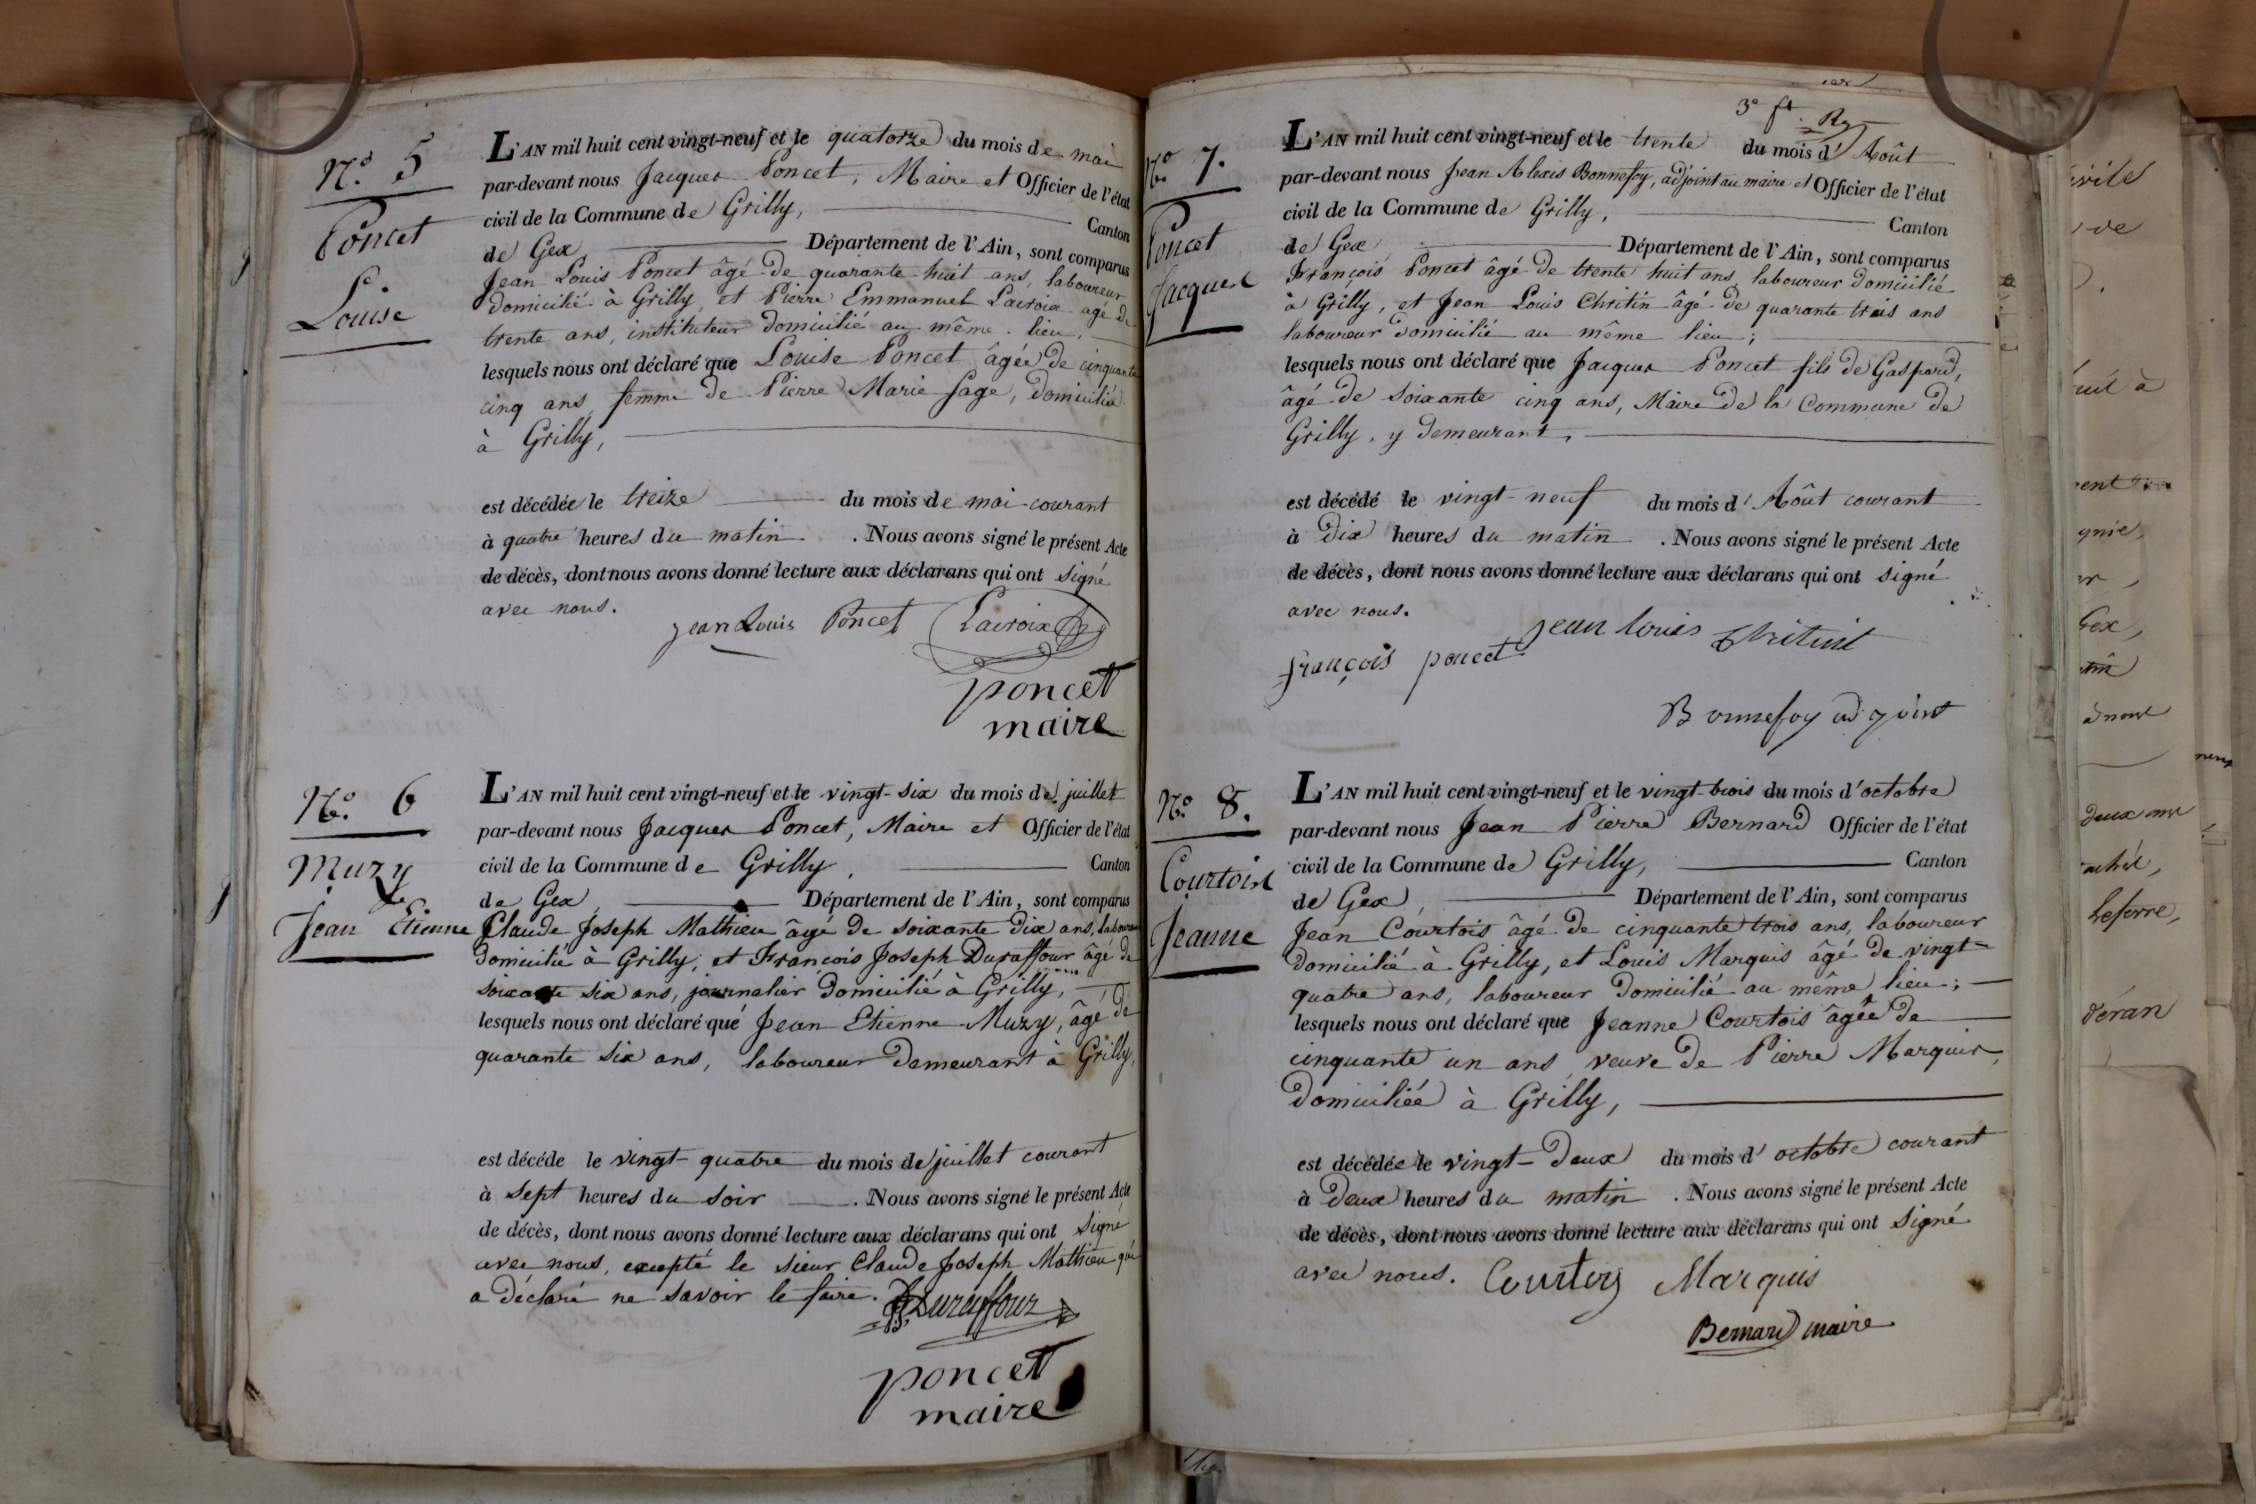 N.° 5
Poncet
Louise
L'AN mil huit cent vingt-neuf et le quatorze du mois de mai
par-devant nous Jacques Poncet, Maire et Officier de l'état
civil de la Commune de Grilly, Canton
de Gex Département de l'Ain, sont comparus
Jean Louis Poncet âgé de quarante-huit ans, laboureur
domicilié à Grilly, et Pierre Emmanuel Lacroix âgé de
trente ans, instituteur domicilié au même lieu,
lesquels nous ont déclaré que Louise Poncet, âgée de cinquante
cinq ans, femme de Pierre Marie Sage, domiciliée
à Grilly,
est décédée le treize du mois de mai courant
à quatre heures du matin. Nous avons signé le présent Acte
de décès, dont nous avons donné lecture aux déclarans qui ont signé
avec nous.
jean Louis Poncet Lacroix
poncet
maire
N.° 6
Muzy
Jean Etienne
L'AN mil huit cent vingt-neuf et le vingt-six du mois de juillet
par-devant nous Jacques Poncet, Maire et Officier de l'état
civil de la Commune de Grilly, Canton
de Gex, Département de l'Ain, sont comparus
Claude Joseph Mathieu âgé de soixante dix ans, laboureur
domicilié à Grilly, et François Joseph Duraffour âgé de
soixante six ans, journalier domicilié à Grilly,
lesquels nous ont déclaré que Jean Etienne Muzy, âgé de
quarante six ans, laboureur demeurant à Grilly,
est décéde le vingt-quatre du mois de juillet courant
à sept heures du soir. Nous avons signé le présent Acte
de décès, dont nous avons donné lecture aux déclarans qui ont signé
avec nous, excepté le sieur Claude Joseph Mathieu qui
a déclaré ne savoir le faire. Duraffour
poncet
maire
N.° 7.
Poncet
Jacques
3e ft.
L'AN mil huit cent vingt-neuf et le trente du mois d'Août
par-devant nous Jean Alexis Bonnefoy, adjoint au maire et Officier de l'état
civil de la Commune de Grilly, Canton
de Gex Département de l'Ain, sont comparus
François Poncet âgé de trente huit ans, laboureur domicilié
à Grilly, et Jean Louis Chritin âgé de quarante trois ans
laboureur domicilié au même lieu;
lesquels nous ont déclaré que Jacques Poncet fils de Gaspard,
âgé de soixante cinq ans, Maire de la Commune de
Grilly, y demeurant,
est décédé le vingt-neuf du mois d'Août courant
à dix heures du matin. Nous avons signé le présent Acte
de décès, dont nous avons donné lecture aux déclarans qui ont signé
avec nous.
jean louis Chritin
françois poncet
Bonnefoy adjoint
N.° 8.
Courtois
Jeanne
L'AN mil huit cent vingt-neuf et le vingt-trois du mois d'octobre
par-devant nous Jean Pierre Bernard Officier de l'état
civil de la Commune de Grilly, Canton
de Gex, Département de l'Ain, sont comparus
Jean Courtois âgé de cinquante trois ans, laboureur
domicilié à Grilly, et Louis Marquis âgé de vingt-
quatre ans, laboureur domicilié au même lieu;
lesquels nous ont déclaré que Jeanne Courtois âgée de
cinquante un ans, veuve de Pierre Marquis,
domiciliée à Grilly,
est décédée le vingt-deux du mois d'octobre courant
à deux heures du matin. Nous avons signé le présent Acte
de décès, dont nous avons donné lecture aux déclarans qui ont signé
avec nous. Courtois Marquis
Bernard maire